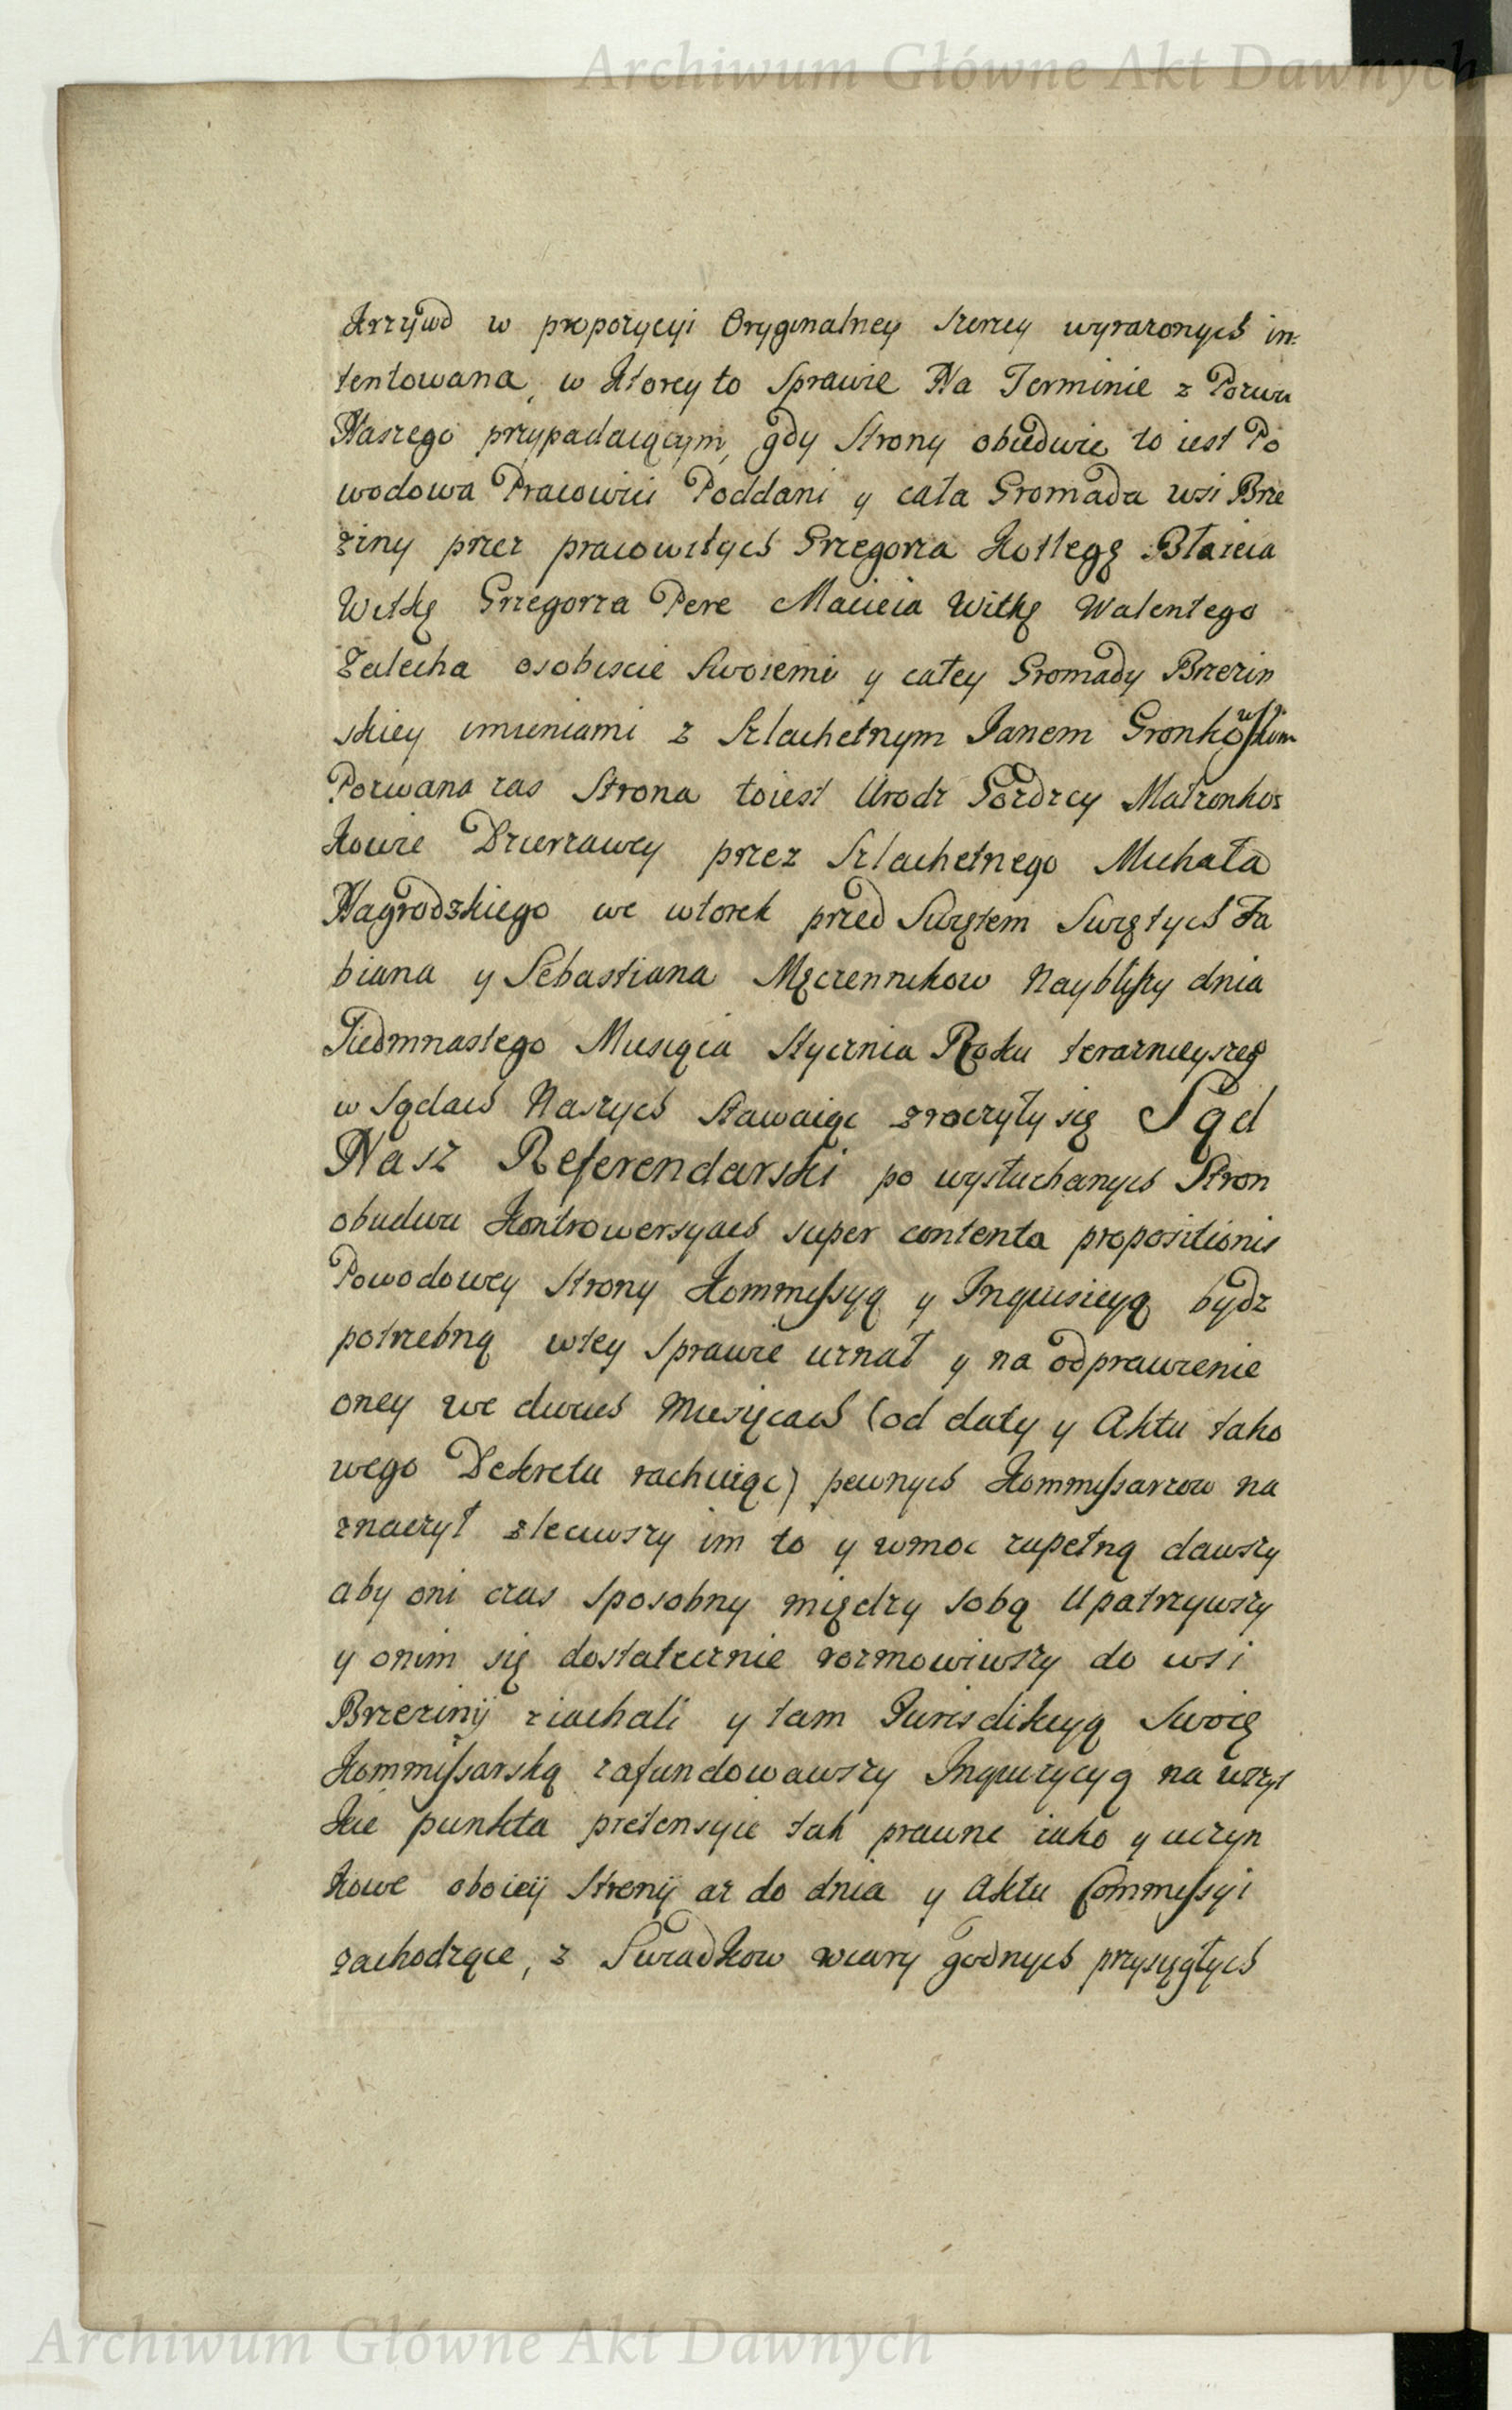 Archiwum Główne Akt Dawnych
Krzywd w propozycyi Oryginalney szerzey wyrazonych in-
tentowana, w ktorey to Sprawie Na Terminie z Pozwu
Naszego przypadaiącym, gdy Strony obiedwie to iest Po
wodowa Pracowici Poddani y cała Gromada wsi Brze
ziny przez pracowitych Grzegorza Błazeia
Witkę Grzegorza Pere Macieia Witkę Walentego
Zelecha osobiscie Swoiemi y całey Gromady Brzezin
skiey imieniami z Szlachetnym Janem Gronkowskim
Pozwana zas Strona toiest Urodz Matzonko
kowie Dzierzawcy przez Szlachetnego Michała
Nagrodzkiego we wtorek przed Swiętem Swiętych Fa
biana y Sebastiana Męczennikow Nayblizszy dnia
Siedmnastego Miesiąca Stycznia Roku terazneyszeg
w Sądach Naszych Stawaiąc zroczyły się Sąd
Nasz Referendarski po wysłuchanych Stron
obudwu Kontrowersyach super contenta propositionis
Powodowey Strony Kommissyą y Inquisicyą bydz
potrzebną wtey Sprawie uznał y na odprawienie
oney we dwuch Miesiącach (od daty y Aktu tako
wego Dekretu rachuiąc) pewnych Kommissarzow na
znaczył zleciwszy im to y wmoc zupełną dawszy
aby oni czas sposobny między sobą Upatrzywszy
y onim się dostatecznie rozmowiwszy do wsi
Brzeziny ziachali y tam Jurisdikcyą Swoię
Kommissarską zafundowawszy Inquizycyą na wszyst
kie punkta pretensyie tak prawne iako y uczyn
kowe oboiey Strony az do dnia y Aktu Commissyi
zachodzące, z Swiadkow wiary godnych przysięgłych
Archiwum Główne Akt Dawnych